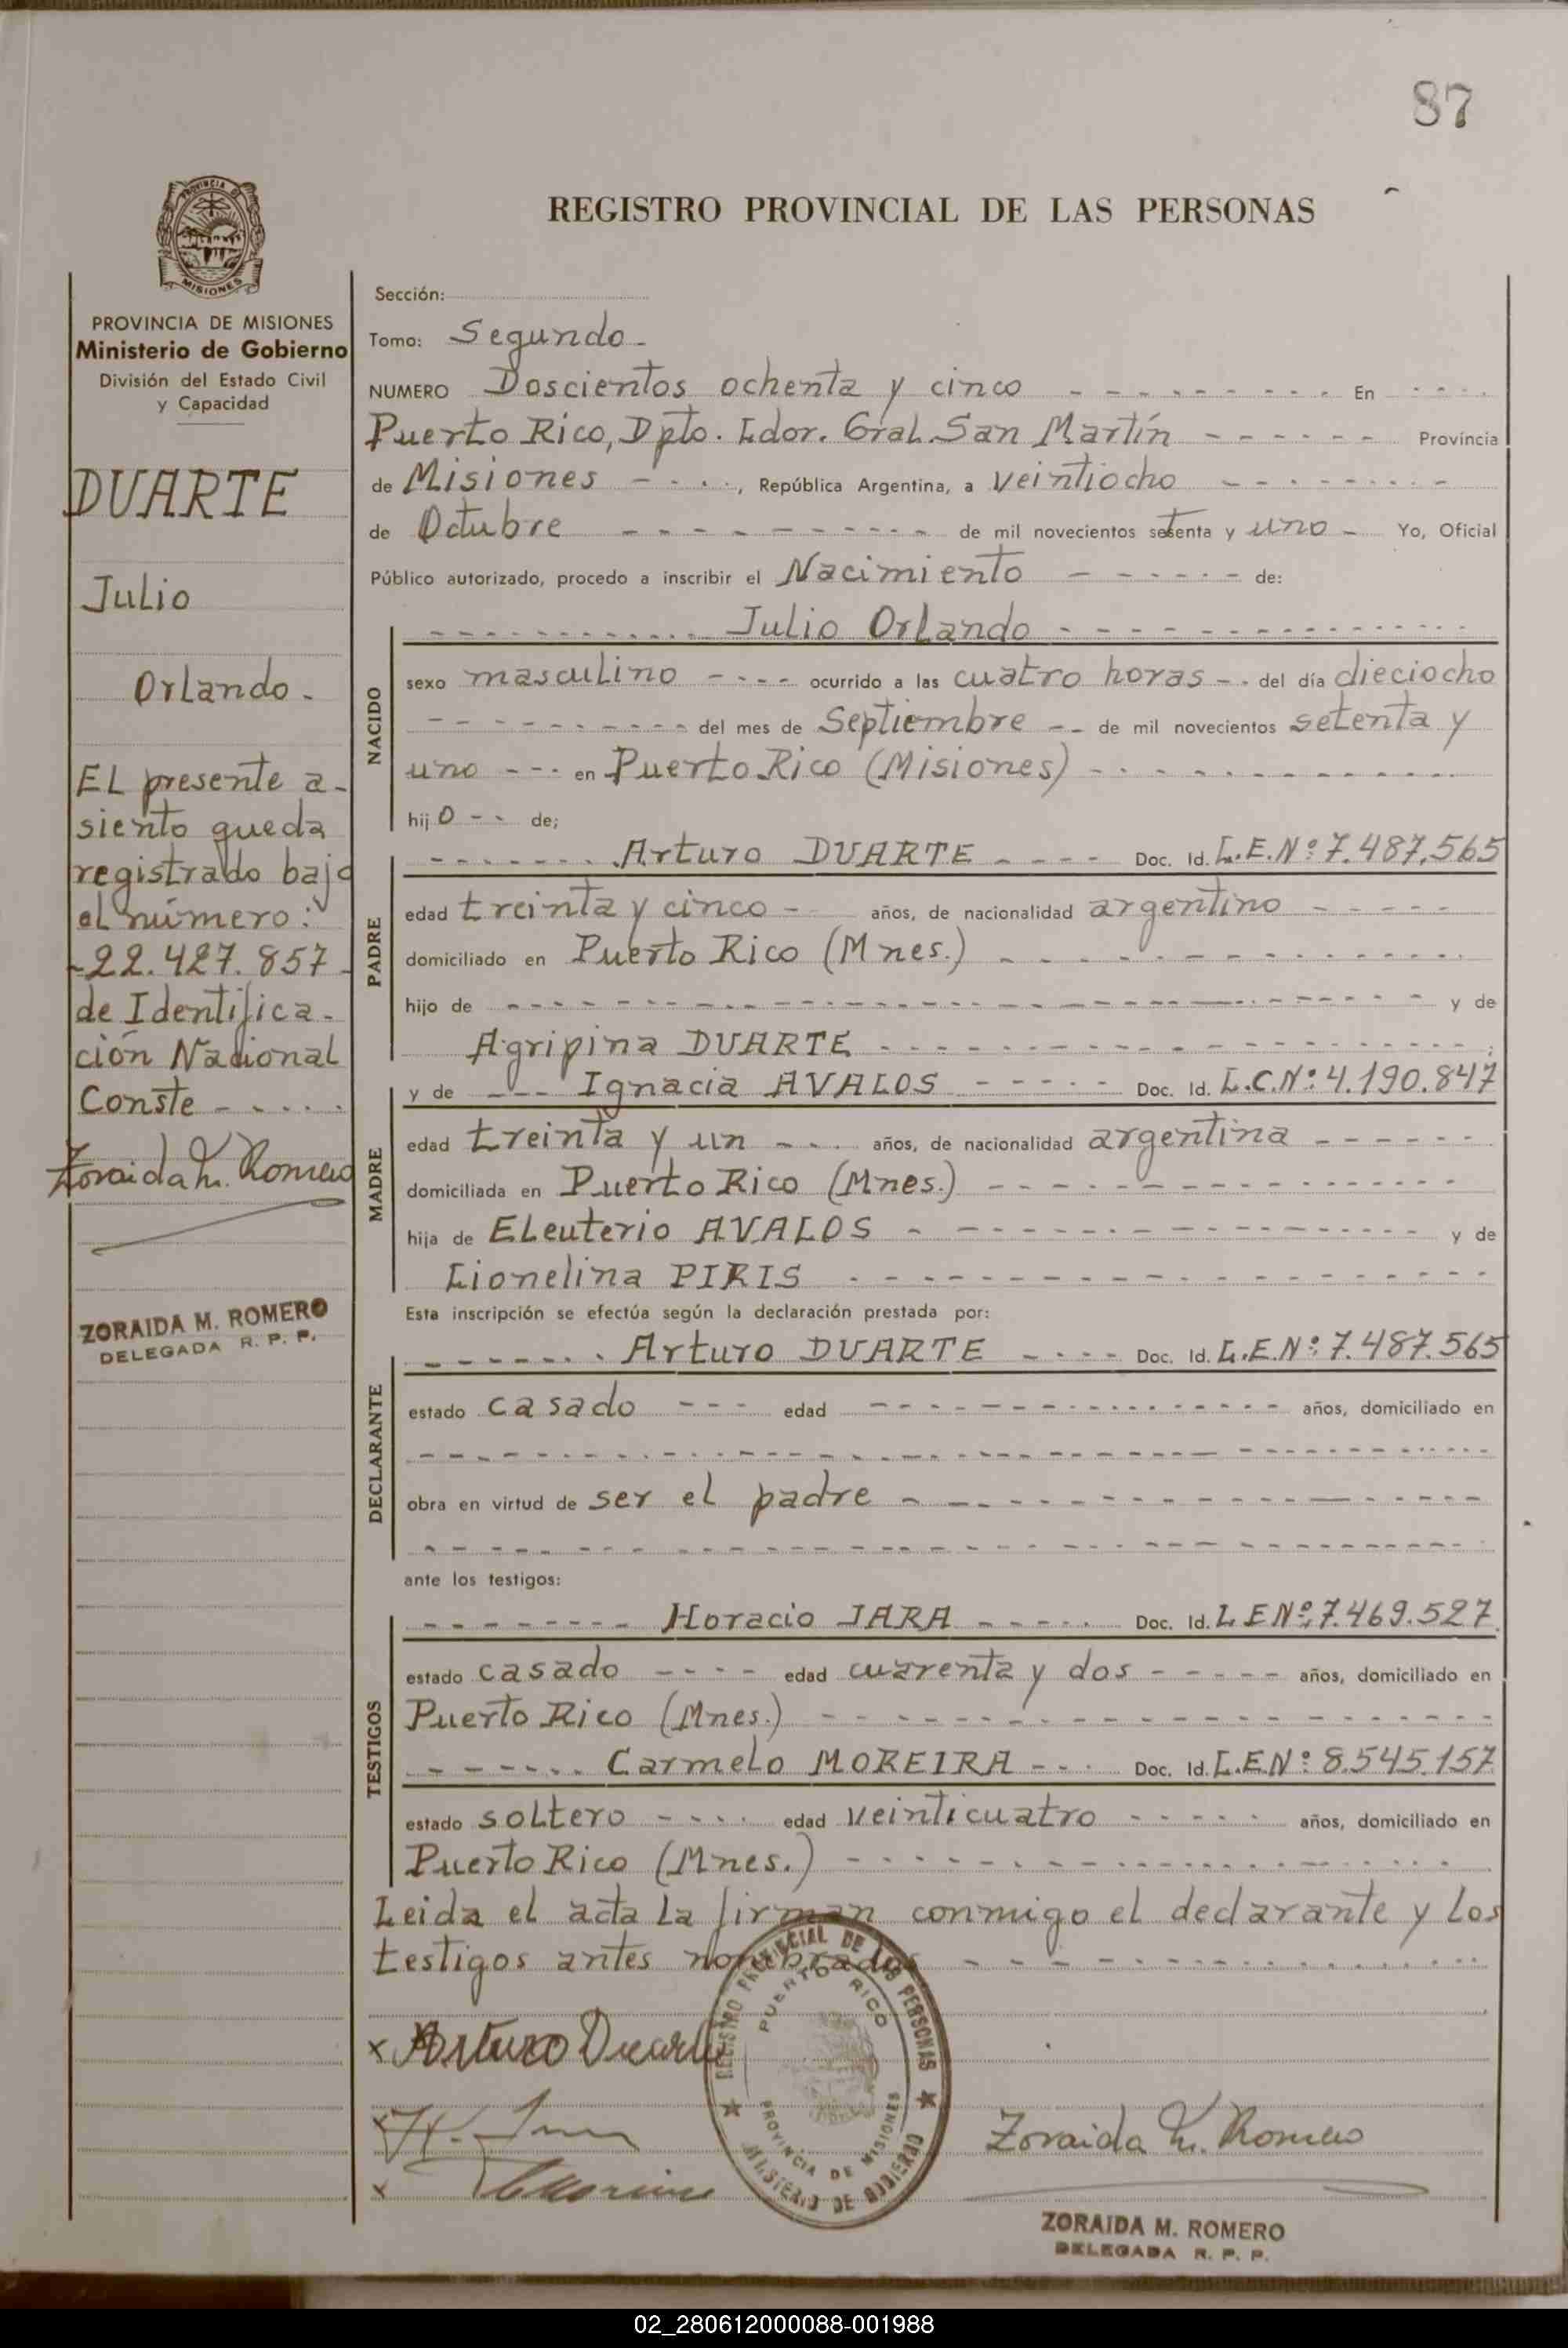 87
REGISTRO PROVINCIAL DE LAS PERSONAS
PROVINCIA DE
MISIONES
PROVINCIA DE MISIONES
Ministerio de Gobierno
División del Estado Civil
y Capacidad
DUARTE
Julio
Orlando.
El presente a-
siento queda
registrado bajo
el número:
-22.427.857-
de Identifica-
ción Nacional
Conste
Zoraida M. Romero
ZORAIDA M. ROMERO
DELEGADA R. P. P.
Sección:
Tomo: Segundo.
NUMERO Doscientos ochenta y cinco En
Puerto Rico, Dpto. Ldor. Gral. San Martín Provincia
de Misiones, República Argentina, a veintiocho
de Octubre de mil novecientos setenta y uno Yo, Oficial
Público autorizado, procedo a inscribir el Nacimiento de:
NACIDO
Julio Orlando
sexo masculino ocurrido a las cuatro horas del día dieciocho
del mes de Septiembre de mil novecientos setenta y
uno en Puerto Rico (Misiones)
hijo de;
PADRE
Arturo DUARTE Doc. Id. L.E.Nº 7.487.565
edad treinta y cinco años, de nacionalidad argentino
domiciliado en Puerto Rico (Mnes.)
hijo de y de
Agripina DUARTE ;
MADRE
y de Ignacia AVALOS Doc. Id. L.C.Nº 4.190.847
edad treinta y un años, de nacionalidad argentina
domiciliada en Puerto Rico (Mnes.)
hija de Eleuterio AVALOS y de
Lionelina PIRIS
Esta inscripción se efectúa según la declaración prestada por:
DECLARANTE
Arturo DUARTE Doc. Id. L.E.Nº 7.487.565
estado casado edad años, domiciliado en
obra en virtud de ser el padre
ante los testigos:
TESTIGOS
Horacio JARA Doc. Id. L E Nº 7.469.527
estado casado edad cuarenta y dos años, domiciliado en
Puerto Rico (Mnes.)
Carmelo MOREIRA Doc. Id. L.E.Nº 8.545.157
estado soltero edad veinticuatro años, domiciliado en
Puerto Rico (Mnes.)
Leida el acta la firman conmigo el declarante y los
testigos antes nombrados
x Arturo Duarte
x H.
x
REGISTRO PROVINCIAL DE LAS PERSONAS
PUERTO RICO
PROVINCIA DE MISIONES
MINISTERIO DE GOBIERNO
Zoraida M. Romero
ZORAIDA M. ROMERO
DELEGADA R. P. P.
02_280612000088-001988